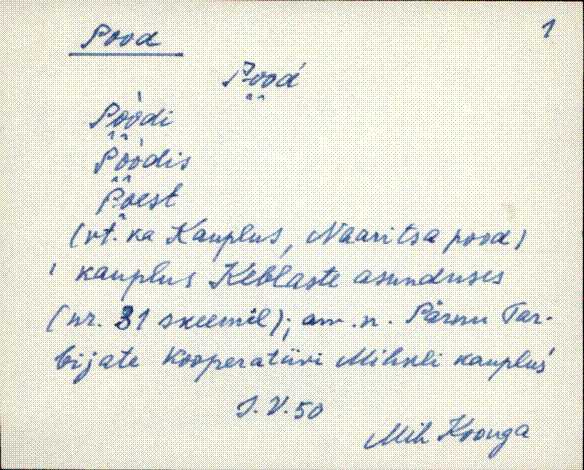 Pood 1
Pood
Pòòdi
Pòòdis
Poest
(vt. ka Kauplus, Naaritsa pood)
kauplus Keblaste asunduses
(nr. 31 skeemil); am. n. Pärnu Tar-
bijate Kooperatiivi Mihkli kauplus
J. V. 50
Mih Koonga